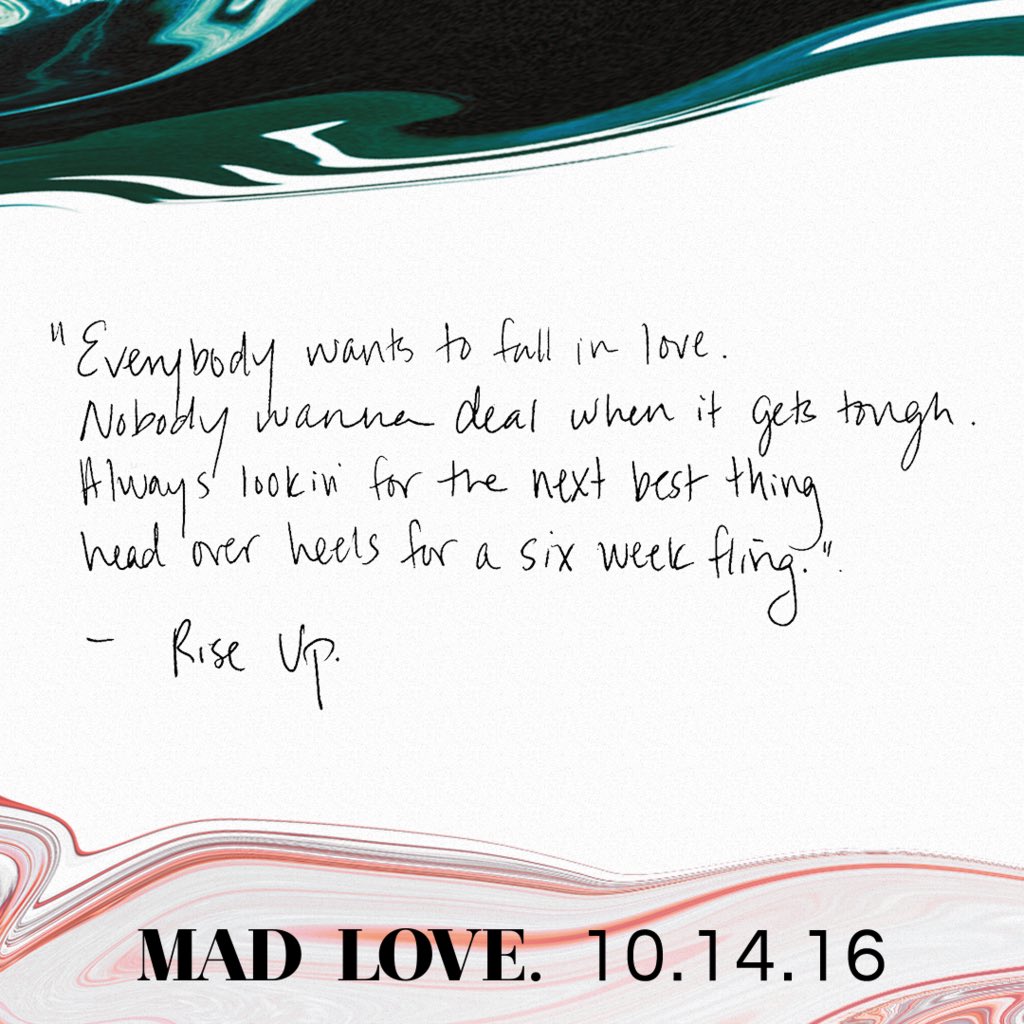 "Everybody wants to fall in love.
Nobody wanna deal when it gets tough.
Always lookin' for the next best thing
head over heels for a six week fling.".
- Rise Up.
MAD LOVE. 10.14.16